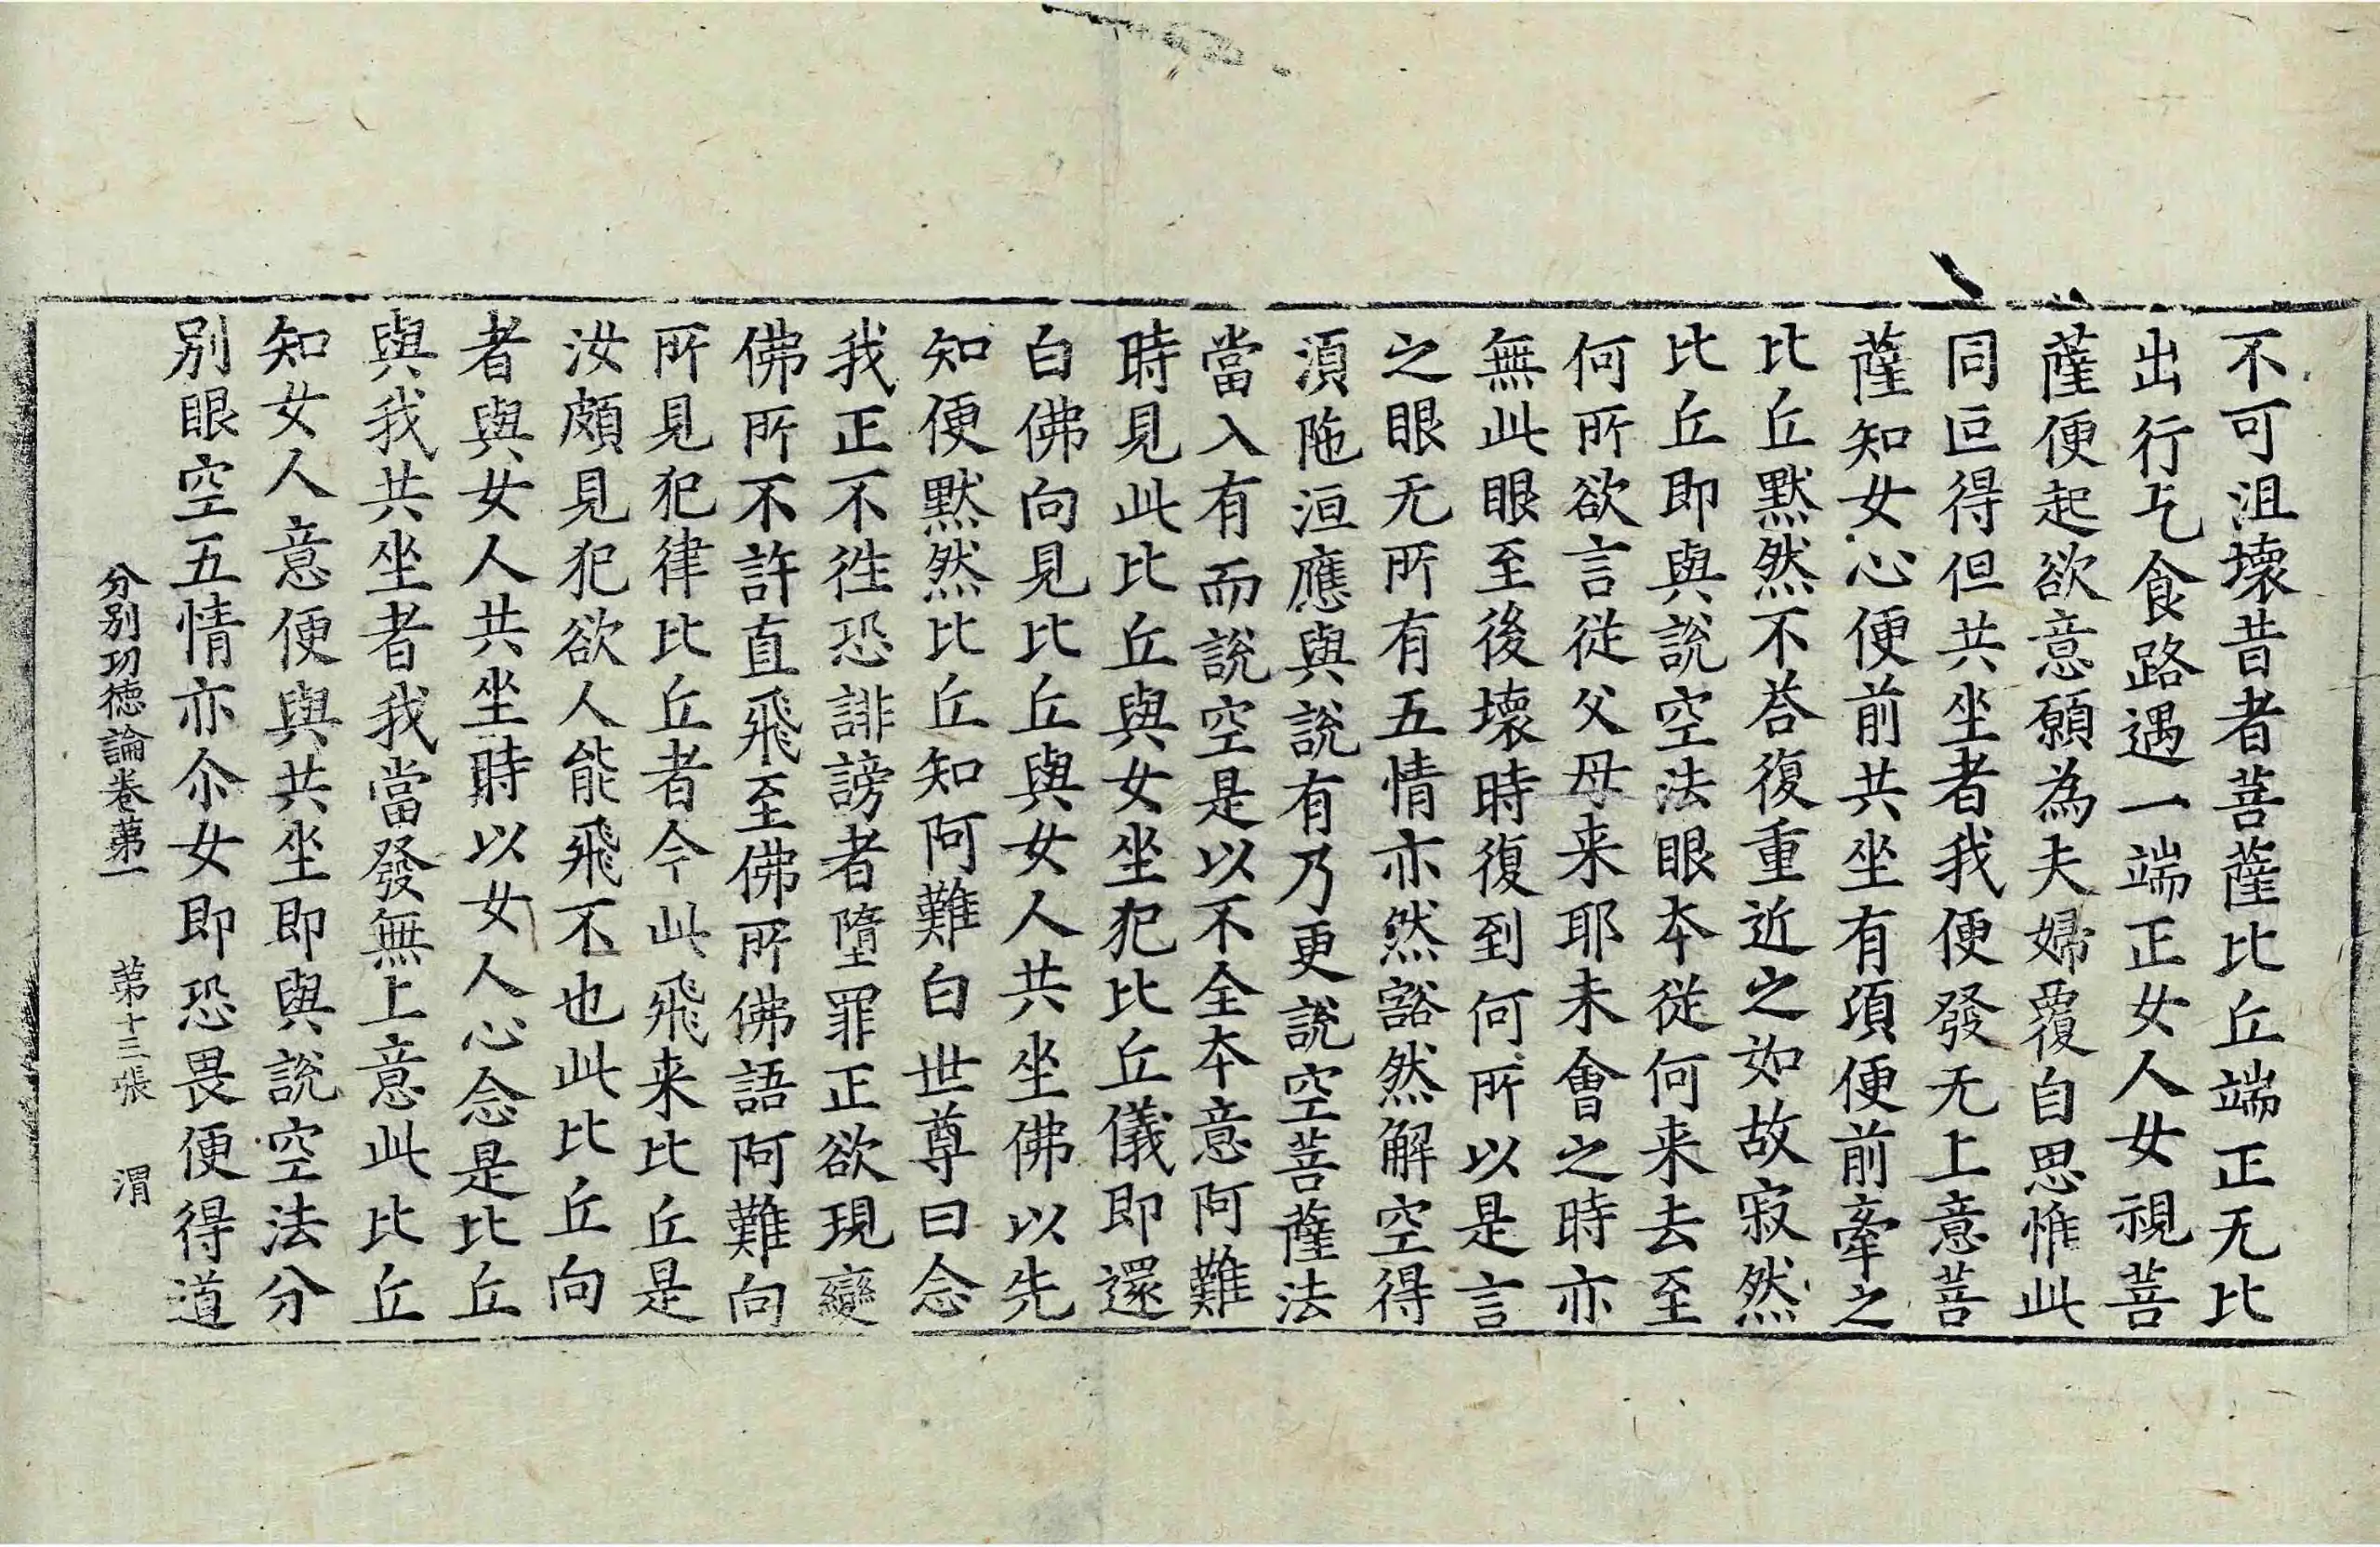 不可沮壞昔者菩薩比丘端正无比
出行乞食路遇一端正女人女視菩
薩便起欲意願為夫婦覆自思惟此
同叵得但共坐者我便發无上意菩
薩知女心便前共坐有頃便前牽之
比丘默然不荅復重近之如故寂然
比丘即與說空法眼本從何来去至
何所欲言従父母来耶未會之時亦
無此眼至後壞時復到何所以是言
之眼无所有五情亦然豁然解空得
湏陁洹應與說有乃更說空菩薩法
當入有而說空是以不全本意阿難
時見此比丘與女坐犯比丘儀即還
白佛向見比丘與女人共坐佛以先
知便默然比丘知阿難白世尊曰念
我正不徃恐誹謗者墮罪正欲現變
佛所不許直飛至佛所佛語阿難向
所見犯律比丘者今此飛来比丘是
汝頗見犯欲人能飛不也此比丘向
者與女人共坐時以女人心念是比丘
與我共坐者我當發無上意此比丘
知女人意便與共坐即與說空法分
別眼空五情亦尒女即恐畏便得道
分別功德論卷苐一 苐十三張 渭